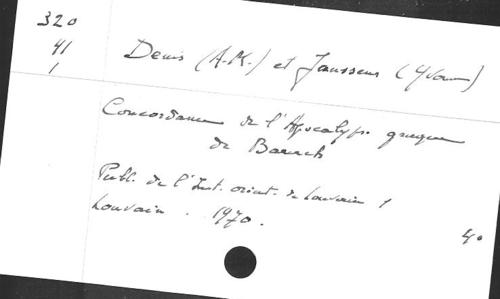 320
41
1
Denis (A.-M.) et Janssens (Yvonne)
Concordance de l'Apocalypse grecque
de Baruch
Publ. de l'Inst. orient. de Louvain 1
Louvain . 1970.
4°